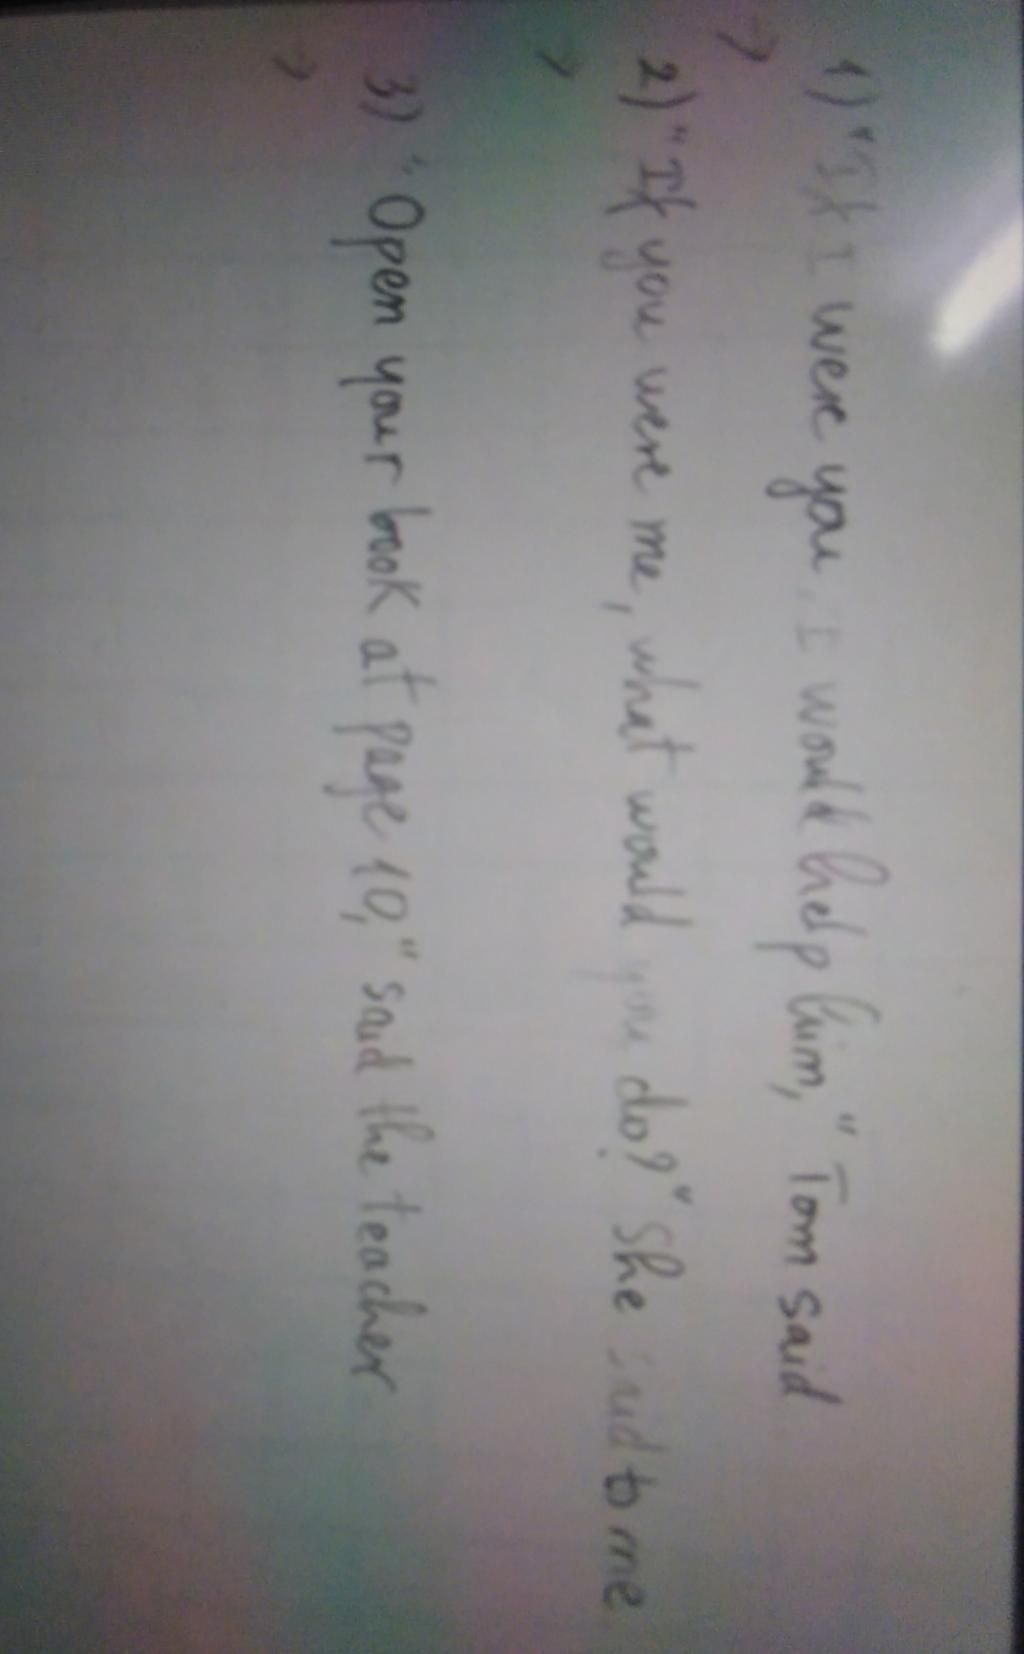 1) "If I were you, I would help him," Tom said
→
2) "If you were me, what would you do?" She said to me
→
3) "Open your book at page 10," said the teacher
→